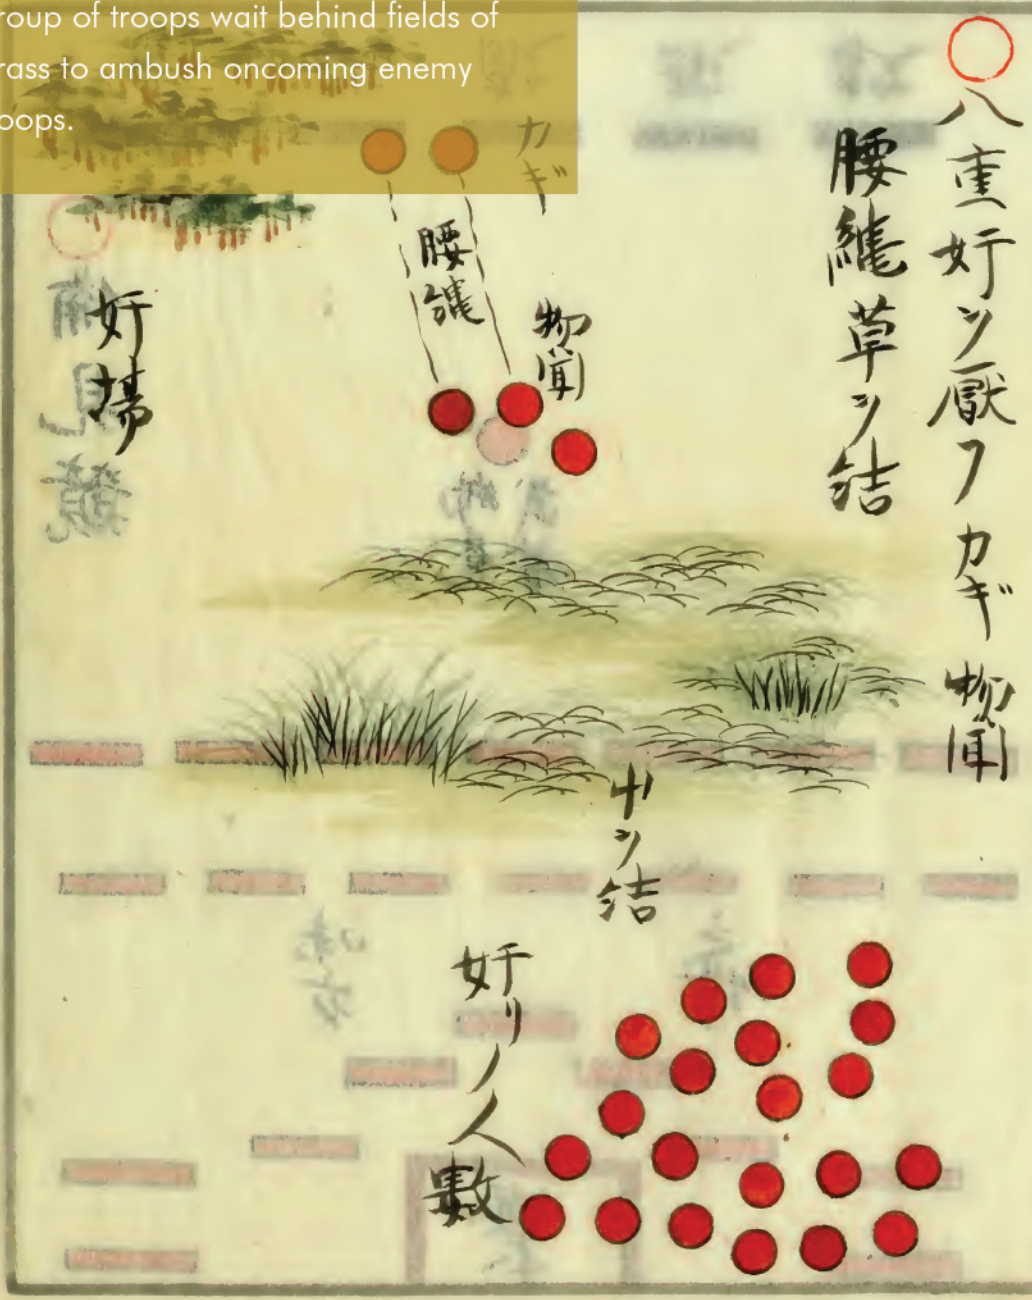 roup of troops wait behind fields of
rass to ambush oncoming enemy
oops.
八重奸ヲ厭フカギ物聞
腰縄草ヲ結
カギ
腰縄
物聞
奸場
ヲ結
奸リノ人數